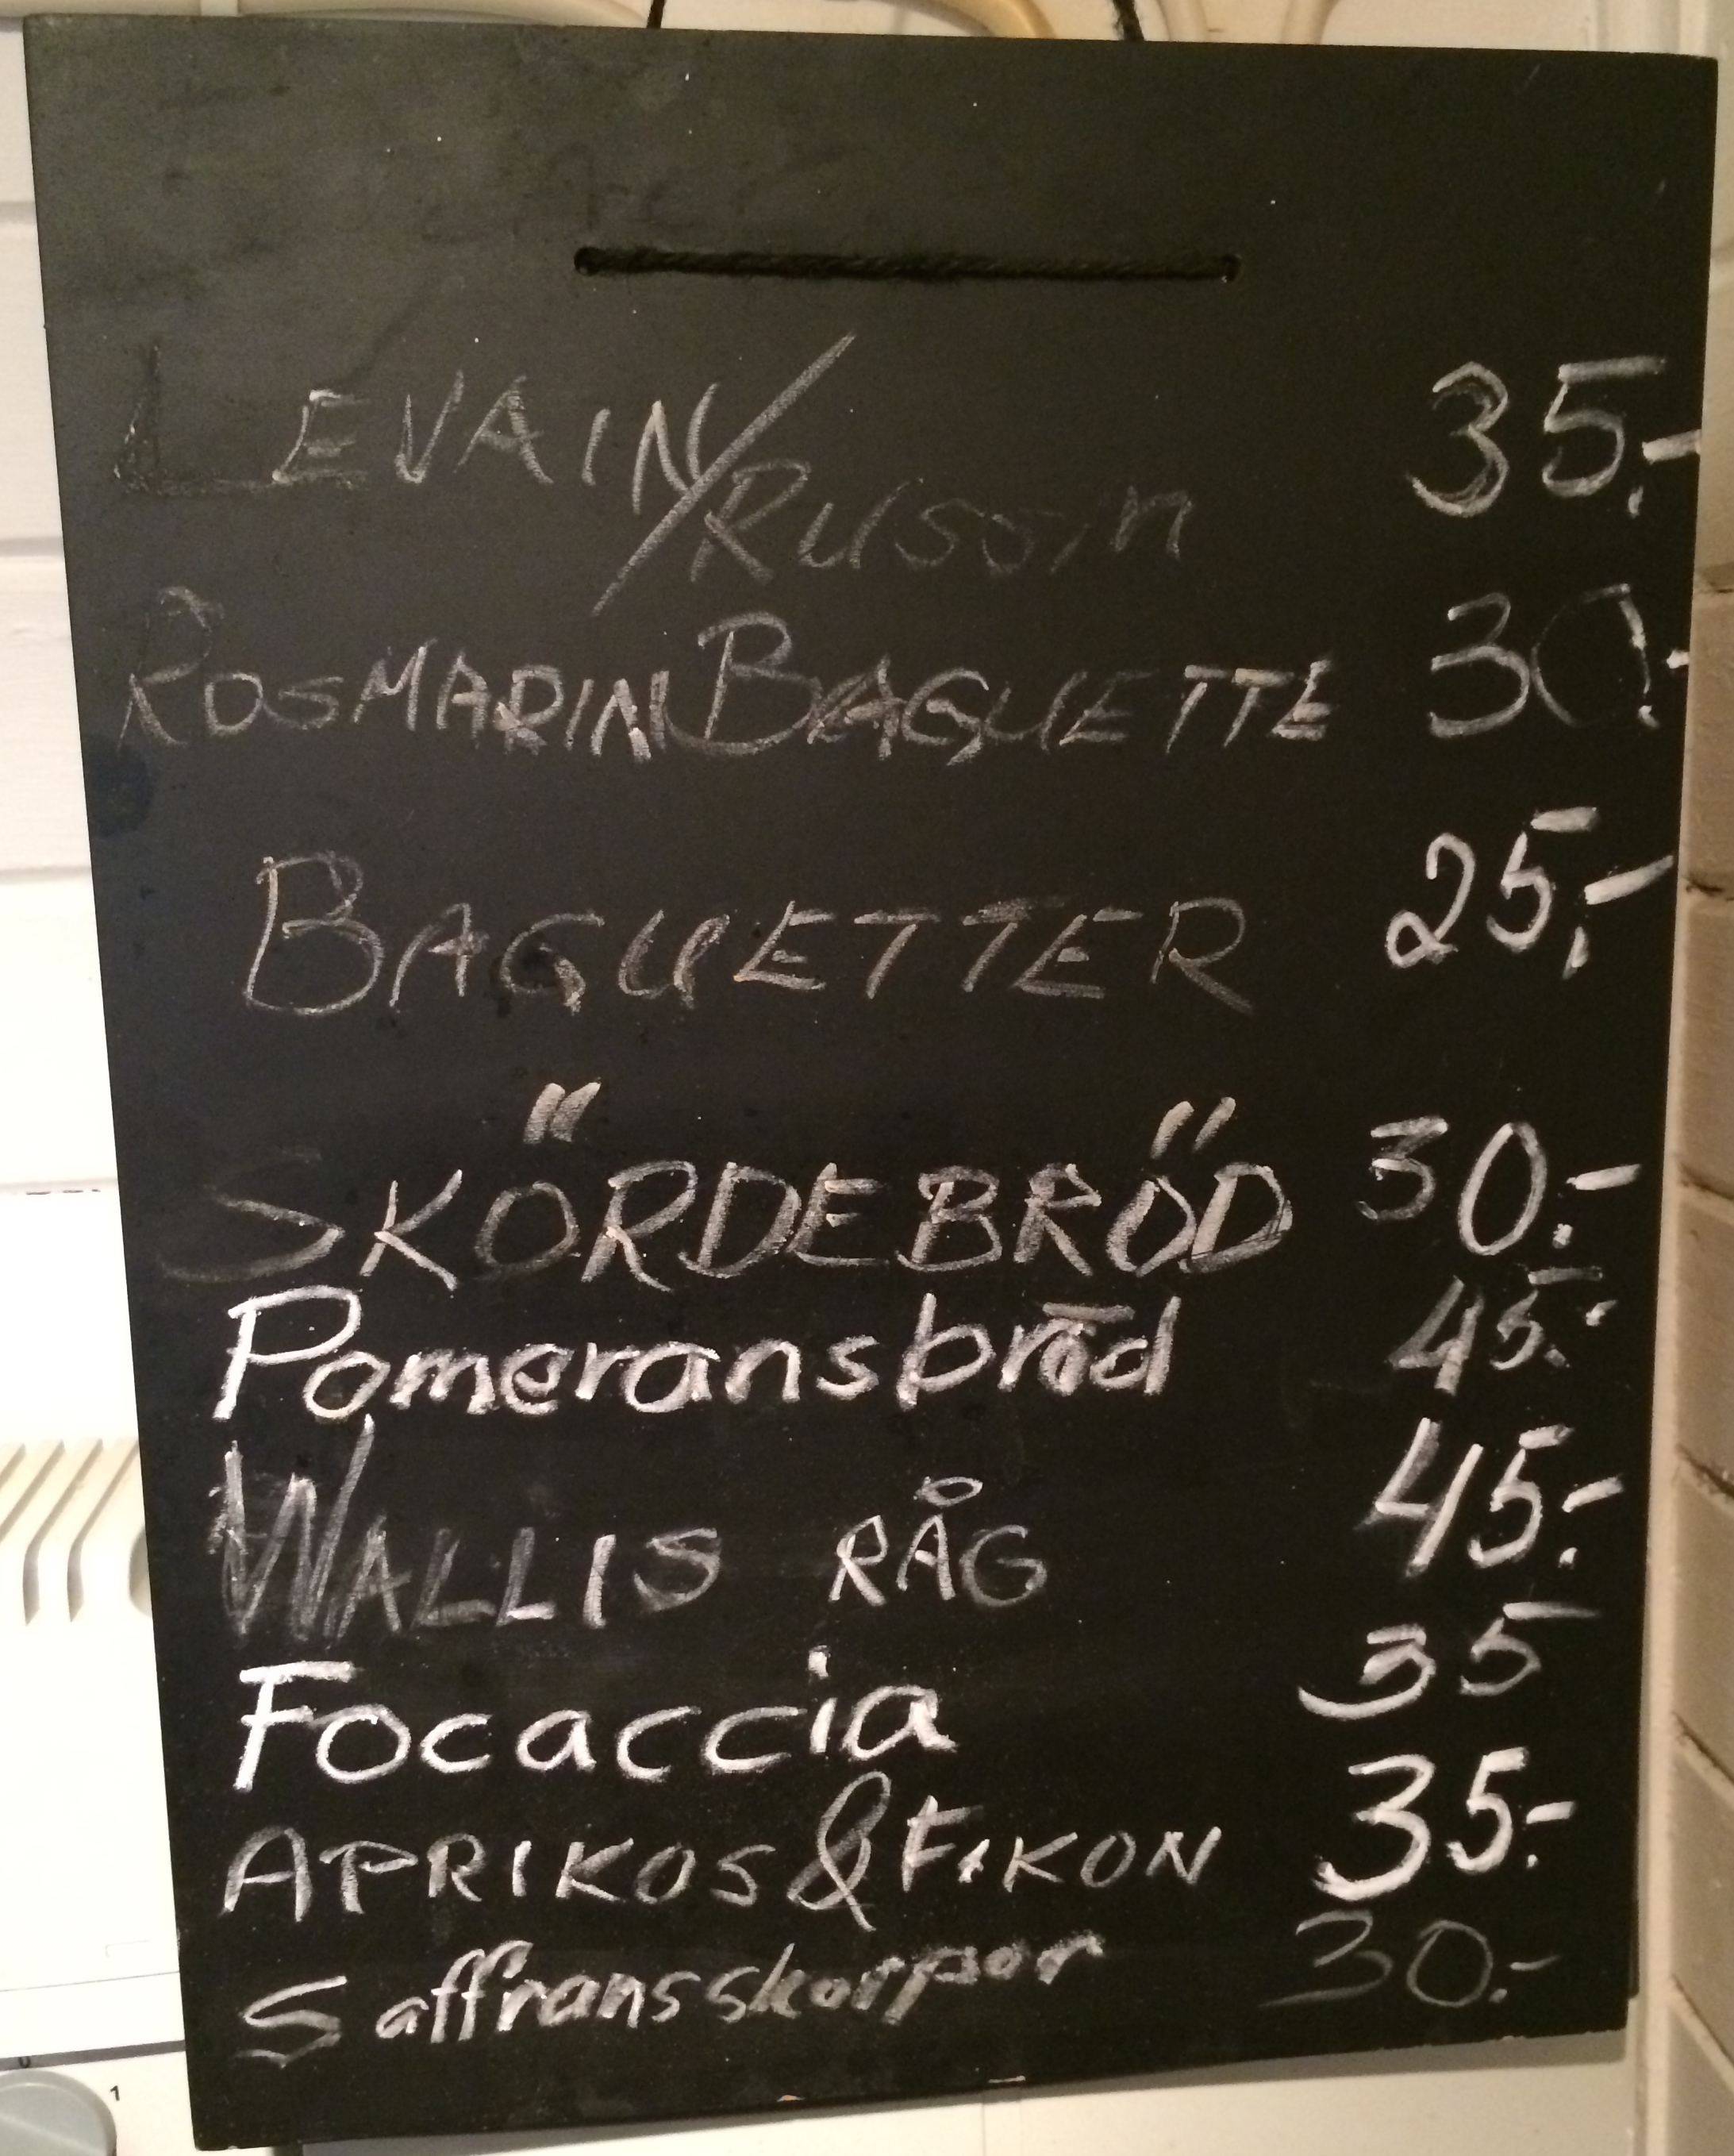 LEVAIN/Russin 35.-
ROSMARIN BAGUETTE 30.-
BAGUETTER 25,-
SKÖRDEBRÖD 30.-
Pomeransbröd 45.-
WALLIS RÅG 45.-
Focaccia 35
APRIKOS & FIKON 35.-
Saffransskorpor 30.-
1